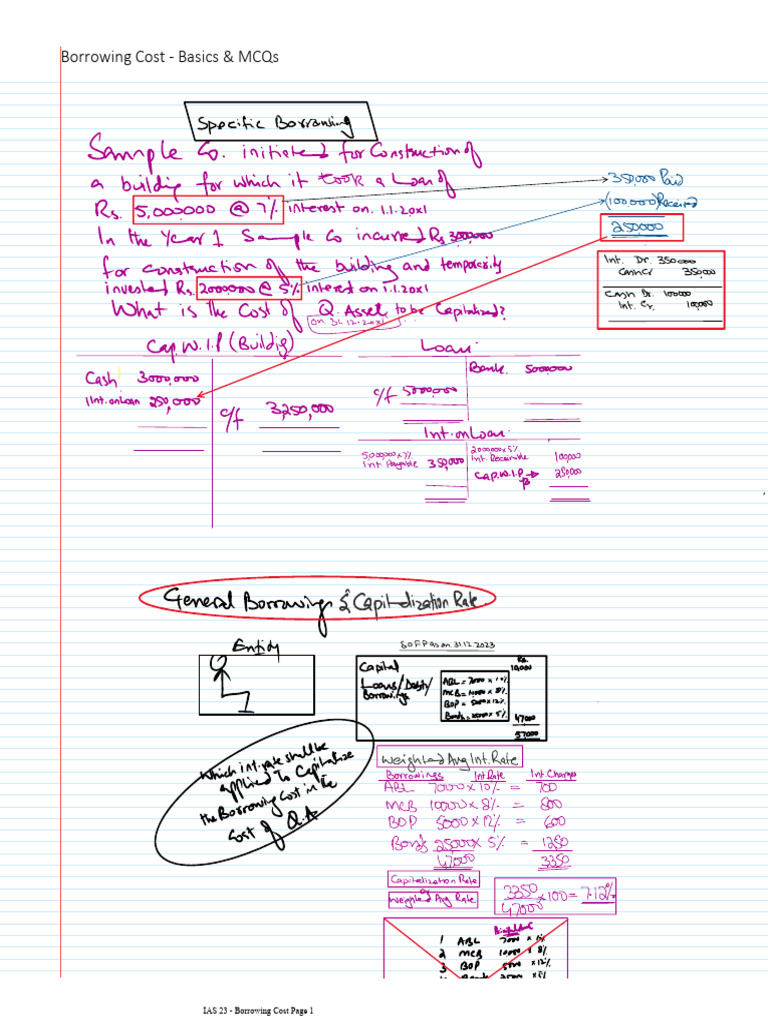 Borrowing Cost - Basics & MCQs
Specific Borrowing
Sample Co. initiated for Construction of
a building for which it took a Loan of
Rs. 5,000000 @ 7% interest on. 1.1.20x1
In the Year 1 Sample Co incurred Rs 3000,000
for construction of the building and temporarily
invested Rs. 2000000 @ 5% interest on 1.1.20x1
What is the Cost of Q. Asset to be Capitalized?
on 31.12.20x1
350,000 Paid
(100,000) Received
250000
Int. Dr. 350000
Cash Cr 350,000
Cash Dr. 100000
Int. Cr. 10,000
Cap. W.I.P (Building)
Cash 3000,000
Int. on Loan 250,000
c/f 3,250,000
Loan
Bank. 5000000
c/f 5000,000
Int. on Loan
5,000000x7%
Int Payable 350,000
2000000x5%
Int. Receivable 100,000
Cap. W.I.P 250,000
General Borrowings & Capitalization Rate
Entity
SOFP as on 31.12.2023
Rs.
Capital 10,000
Loans/Debts/
Borrowings
ABL = 7000 x 10%
MCB = 10000 x 8%
BOP = 5000 x 12%
Bonds = 25000 x 5%
47000
57000
Which int. rate shall be
applied to Capitalize
the Borrowing Cost in the
Cost of Q.A
Weighted Avg Int. Rate
Borrowings Int Rate Int Charges
ABL 7000 x 10% = 700
MCB 10000 x 8% = 800
BOP 5000 x 12% = 600
Bonds 25000 x 5% = 1250
47000 3350
Capitalization Rate
or
Weighted Avg Rate
3350/47000 x 100 = 7.12%
1 ABL 7000 x 10%
2 MCB 10000 x 8%
3 BOP 5000 x 12%
IAS 23 - Borrowing Cost Page 1